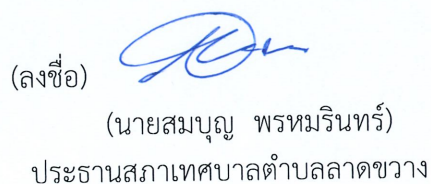 (ลงชื่อ)
(นายสมบุญ พรหมรินทร์)
ประธานสภาเทศบาลตำบลลาดขวาง